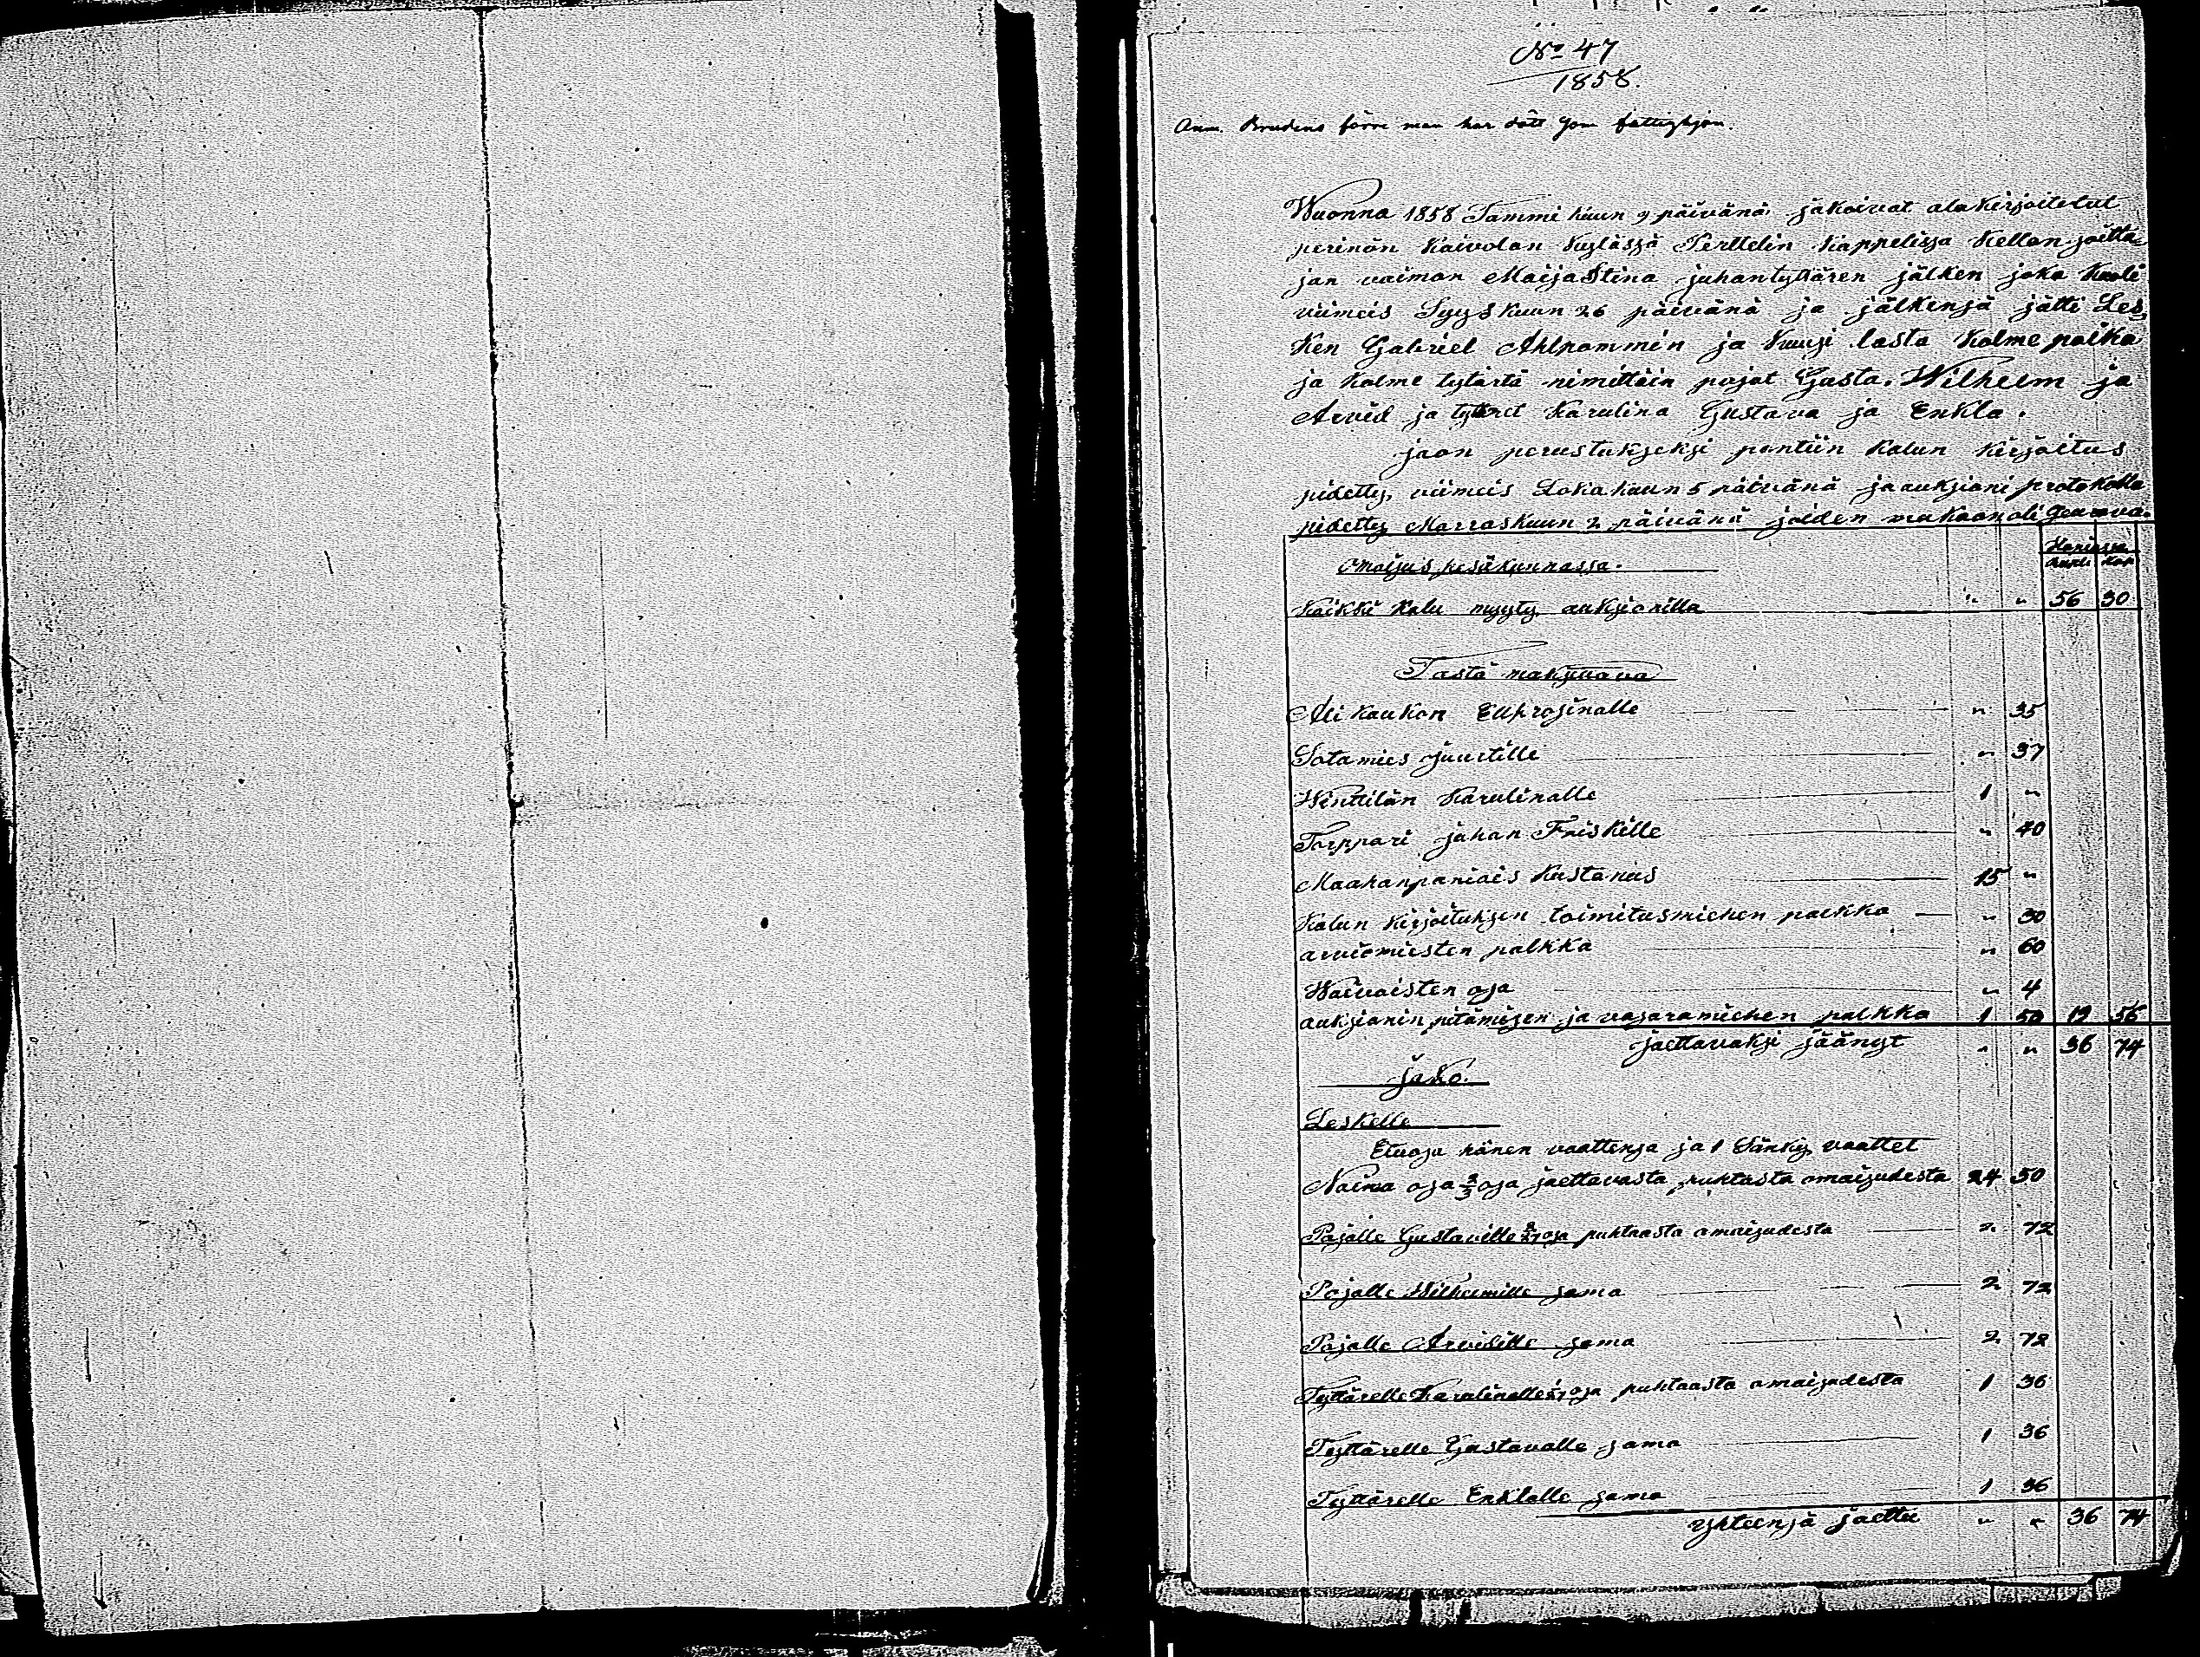 No 47
1858.
Anm. Brudens förre man har dött som fattighjon.
Wuonna 1858 Tammi kuun 9 päivänä jakoivat alakirjoitetut
perinön Kaivolan Kylässä Perttelin Kappelissa Kellon soitta=
jan vaimon MaijaStina juhantyttären jälken joka Kuoli
viimeis Syyskuun 26 päivänä ja jälkensä jätti Les=
Ken Gabriel Ahlrommin ja Kuusi lasta Kolme poika
ja Kolme tytärtä nimittäin pojat Gusta. Wilhelm ja
Arvid ja tytöret Karulina Gustava ja Enkla.
jaon perustukseksi pantiin Kalun Kirjoitus
pidetty viimeis Lokakuun 5 päivänä ja auksioni protokolla
pidetty Marraskuun 2 päivänä joiden mukaan oli Seurava.
Omaisus pesäkunnassa. Rupli Kop
Kaikki Kalu myyty auksionilla " " 56 30
Tästä maksuava
Ali Kaukon Euprosinalle " 35
Sotamies Juustille " 37
Winttilän Karulinalle 1 "
Torppari juhan Friskille " 40
Maahanpaniais Kustanus 15 "
Kalun Kirjoituksen toimitusmiehen palkka " 30
arviomiesten palkka " 60
Waivaisten osa " 4
auksionin pitämisen ja vasaramiehen palkka 1 50 19 56
jaettavaksi jäänyt " " 36 74
Jako.
Leskelle
Etuosa hänen vaattensa ja 1 Sänky vaattet
Naima osa 2/3 osa jaettavasta puhtasta omaisudesta 24 50
Pojalle Gustaville 2/27 osa puhtaasta omaisudesta 2 72
Pojalle Wilhelmille sama 2 72
Pojalle Arvidille sama 2 72
Tyttärelle Karulinalle 1/27 osa puhtaasta omaisudesta 1 36
Tyttärelle Gustavalle sama 1 36
Tyttärelle Enklalle sama 1 36
Yhteensä jaettu " " 36 74